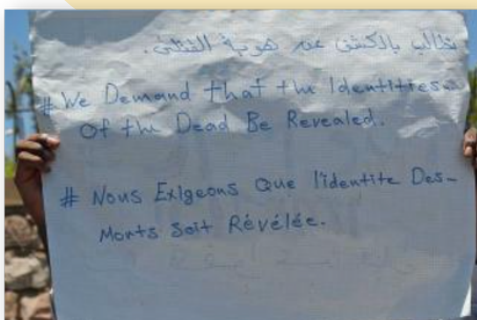 نطالب بالكشف عن هوية القتلى.
# We Demand that the Identities
Of the Dead Be Revealed.
# Nous Exigeons Que l'identite Des-
Morts Soit Révélée.